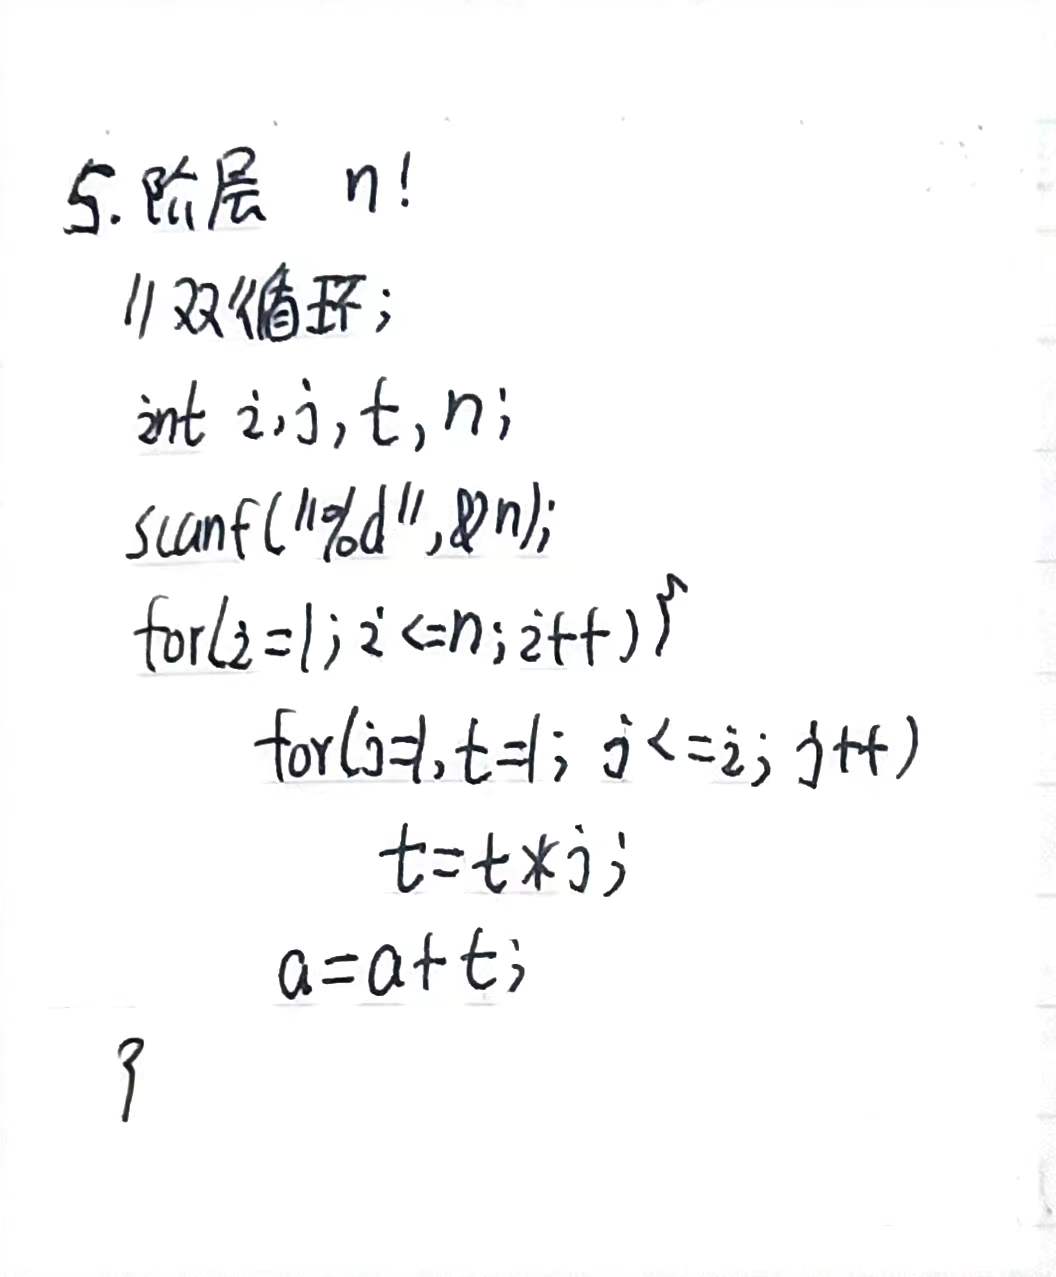 5. 阶层 n!
//双循环;
int i,j,t,n;
scanf("%d",&n);
for(i=1;i<=n;i++){
for(j=1,t=1; j<=i; j++)
t=t*j;
a=a+t;
}